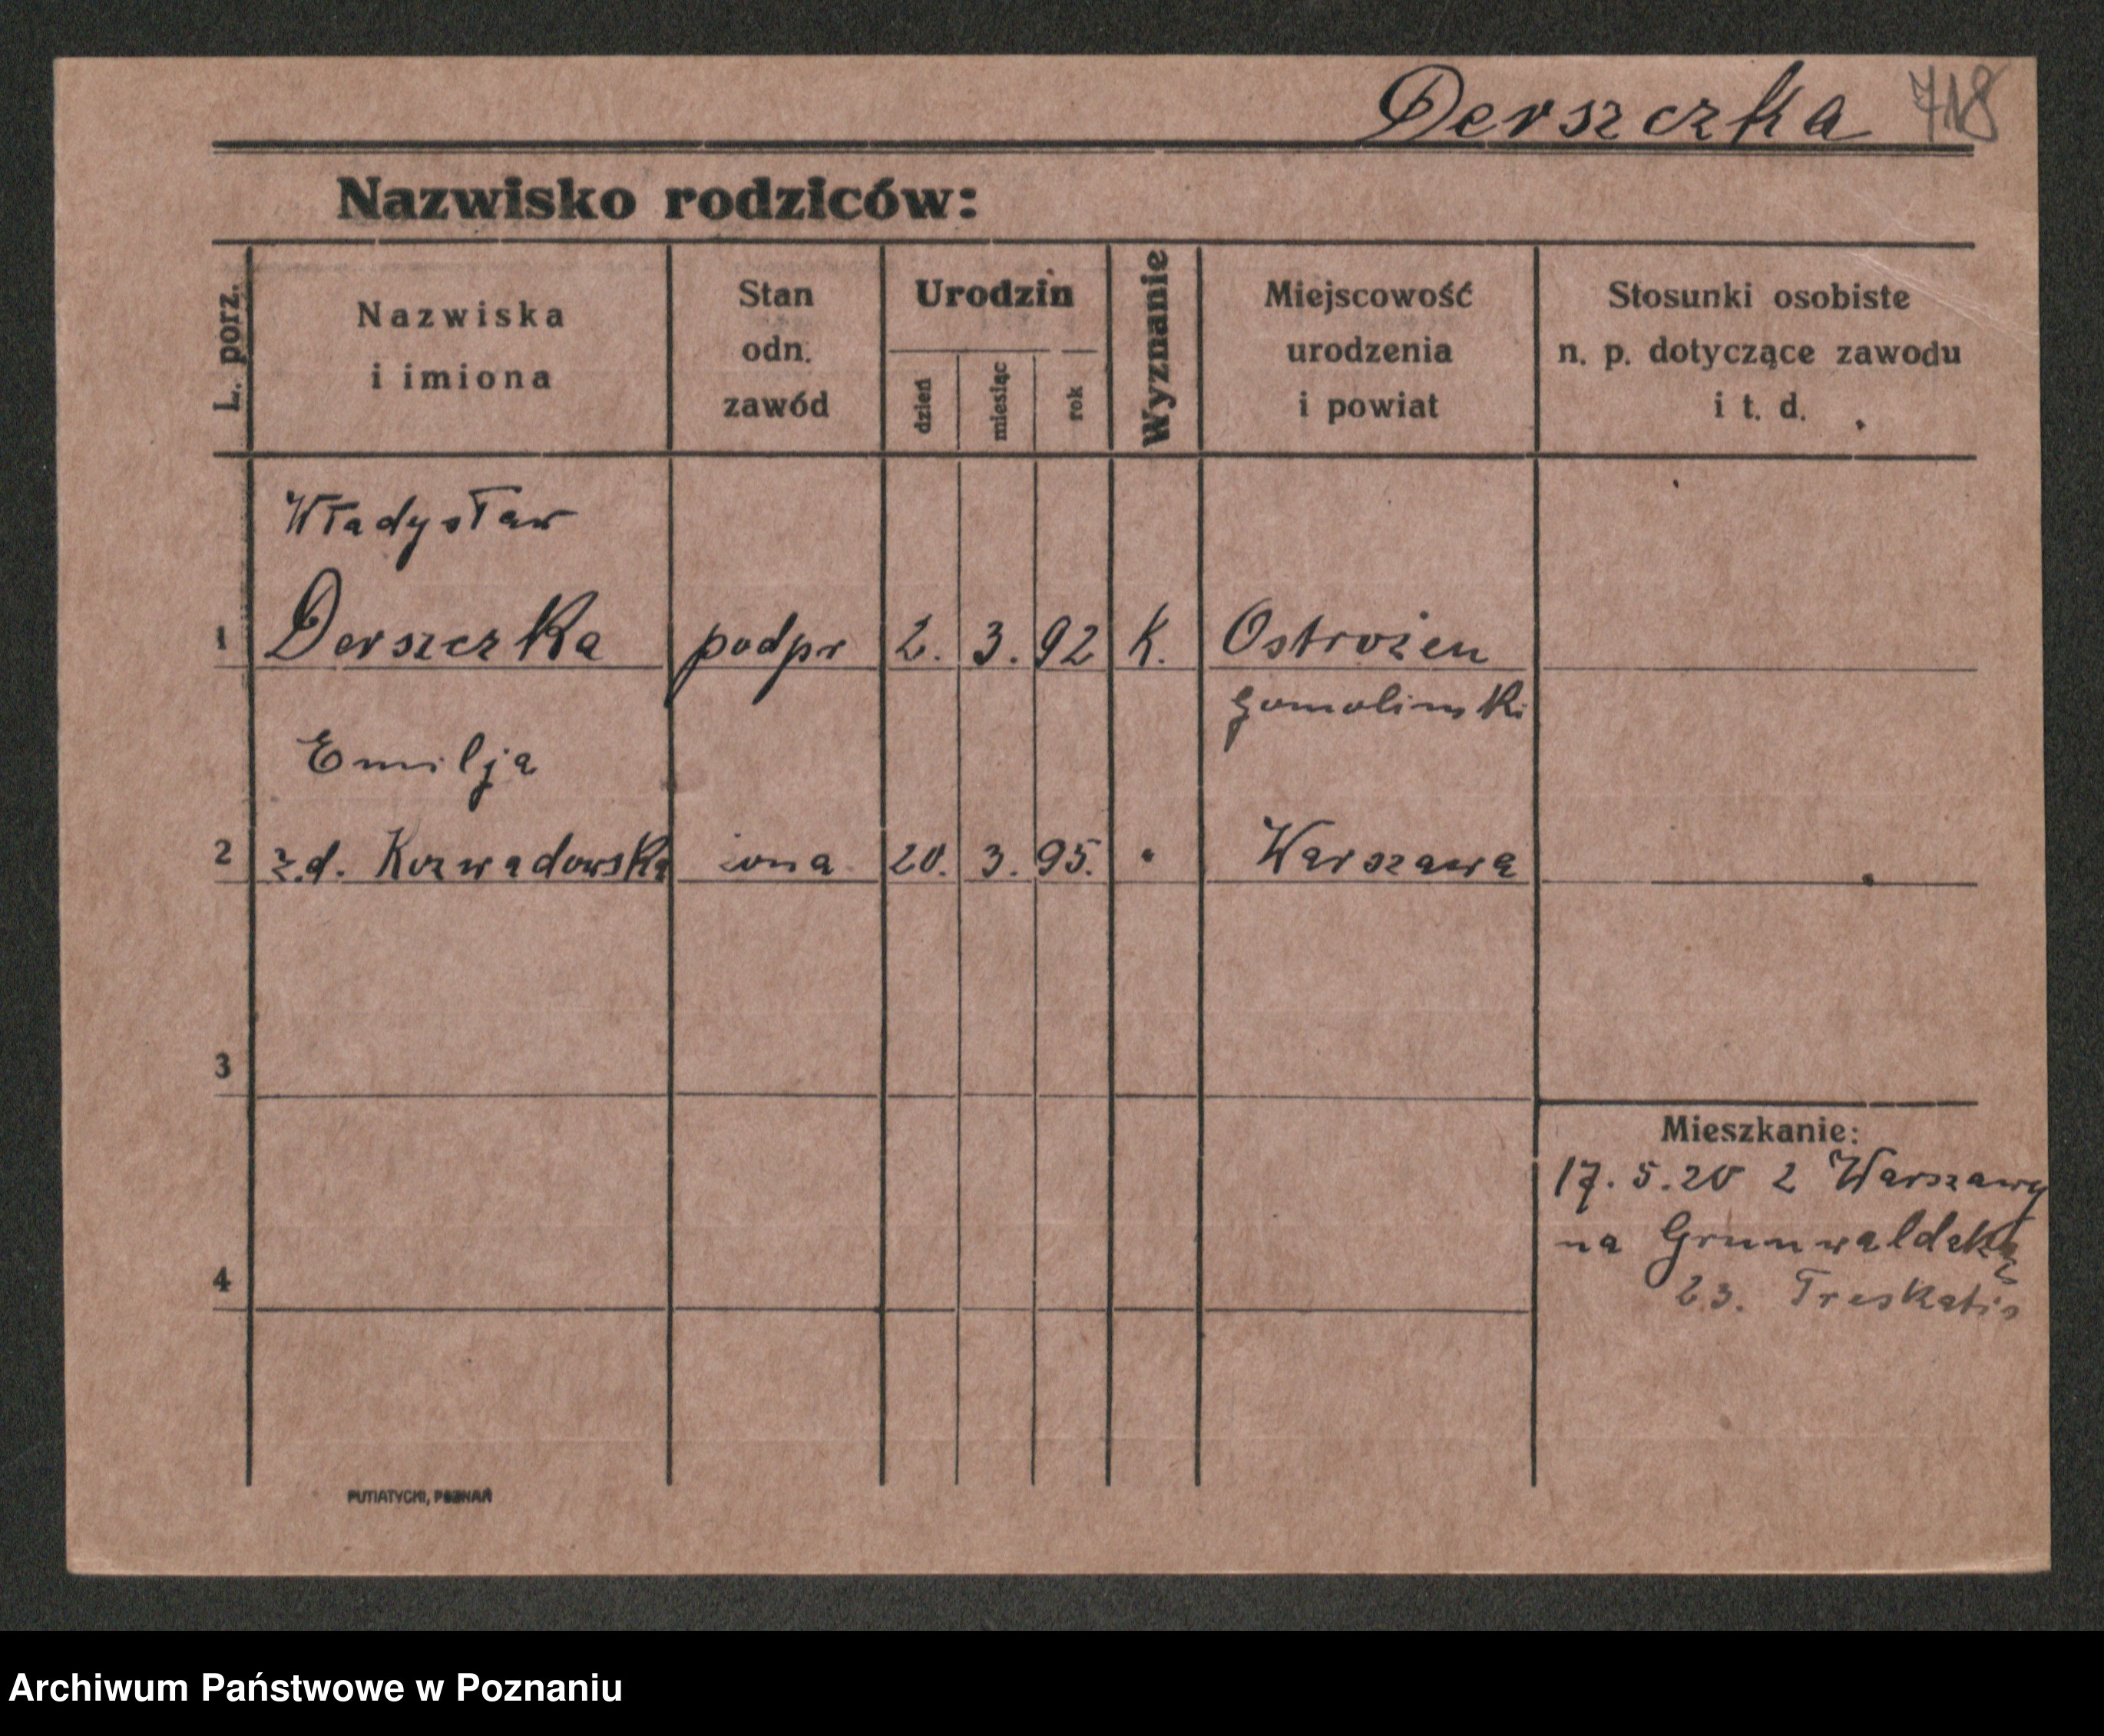 Derszczka 718
Nazwisko rodziców:
L. porz.
Nazwiska
i imiona
Stan
odn.
zawód
Urodzin
dzień
miesiąc
rok
Wyznanie
Miejscowość
urodzenia
i powiat
Stosunki osobiste
n. p. dotyczące zawodu
i t. d.
Władysław
1 Derszczka podpr 2. 3. 92 K. Ostrożen
Gomolinski
Emilja
2 z.d. Kozwadowska żona 20. 3. 95. " Warszawa
3
Mieszkanie:
17. 5. 20 z Warszawy
na Grunwaldzką
4
23. Treskatis
PUTIATYCKI, POZNAŃ
Archiwum Państwowe w Poznaniu